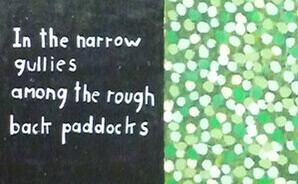 In the narrow
gullies
among the rough
back paddocks